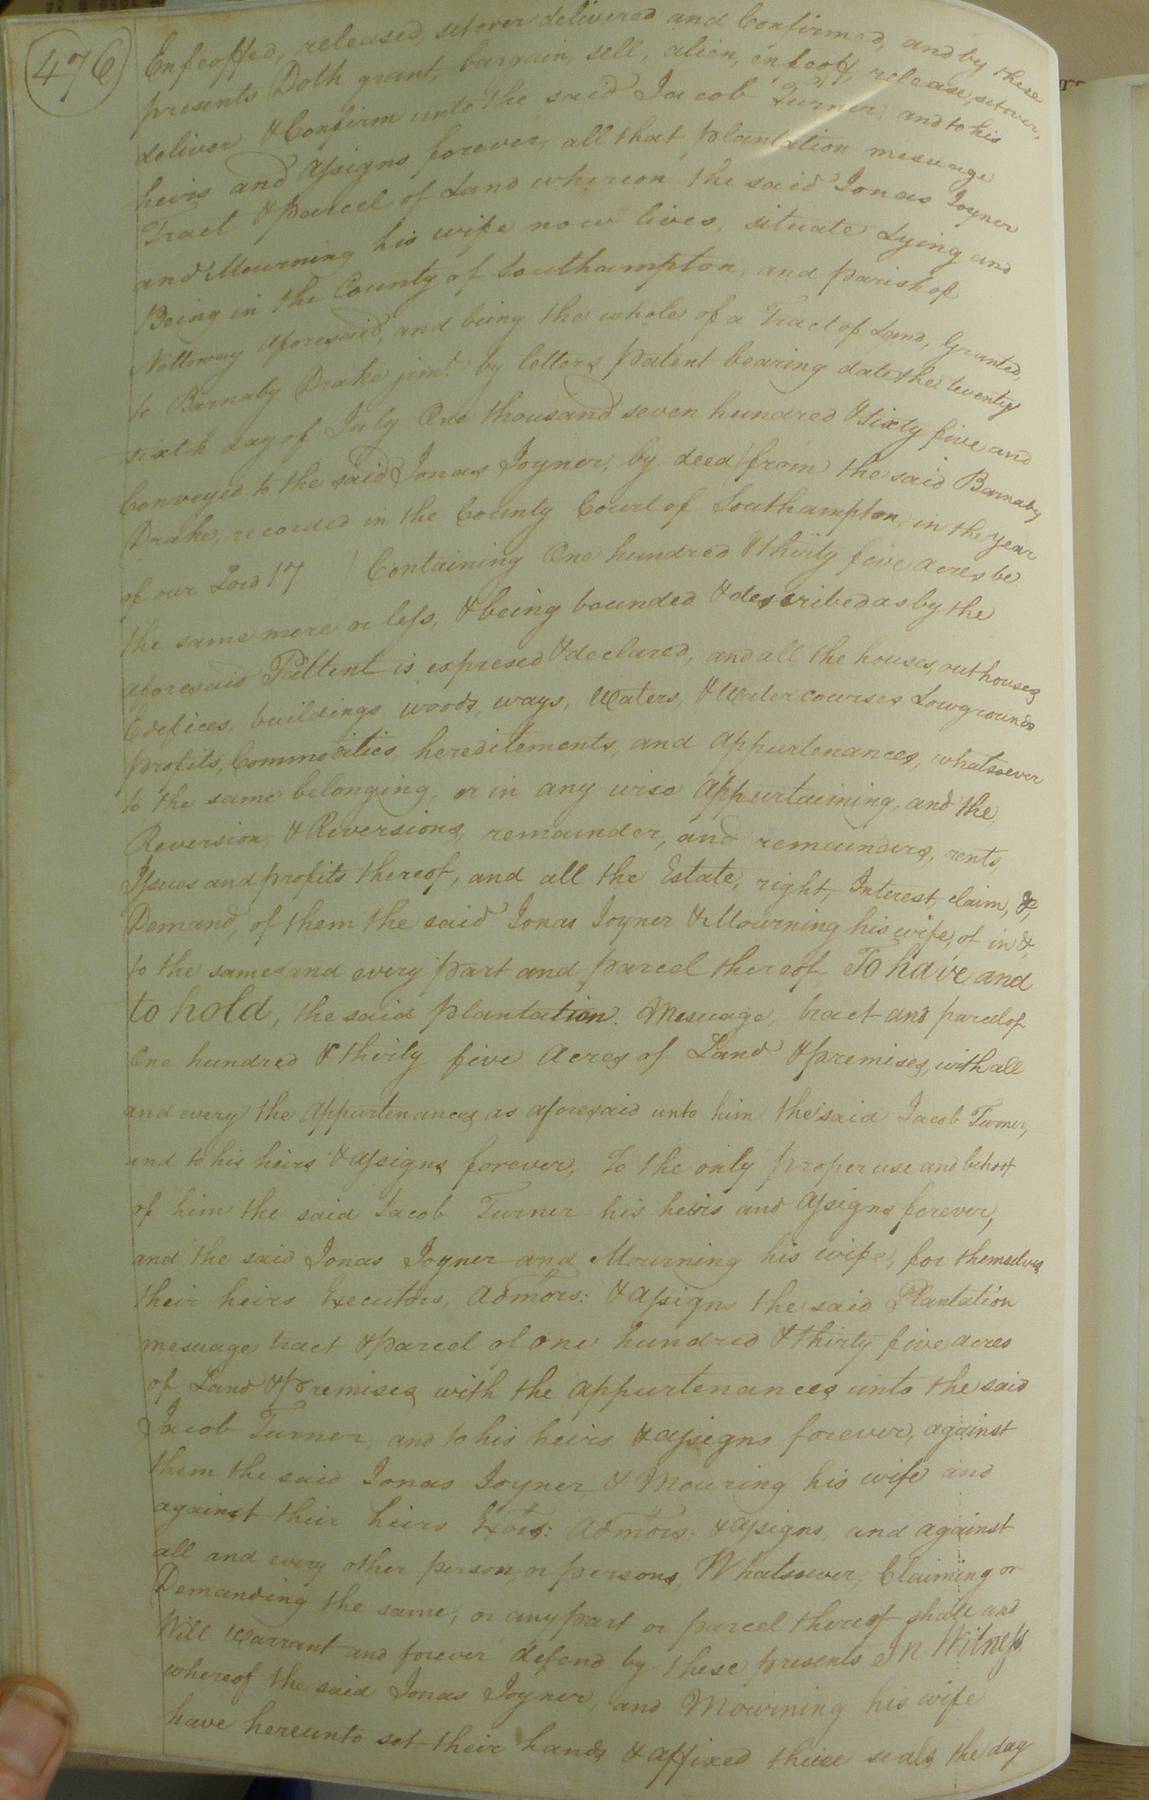 476
Enfeoffed, released, setover delivered and Confirmed, and by these
presents Doth grant, bargain, sell, alien, enfeoff, release, setover,
deliver & Confirm unto the said Jacob Turner, and to his
heirs and assigns forever, all that plantation mesuage
Tract & parcel of Land whereon the said Jonas Joyner
and Mourning his wife now lives, situate Lying and
Being in the County of Southampton, and parish of
Nottoway aforesaid, and being the whole of a Tract of Land, Granted,
to Barnaby Drake junr. by letters patent bearing date the twenty
sixth day of July One thousand seven hundred & sixty five and
Conveyed to the said Jonas Joyner, by deed from the said Barnaby
Drake, recorded in the County Court of Southampton, in the year
of our Lord 17 ) Containing One hundred & thirty five acres be
the same more or less, & being bounded & described as by the
aforesaid Pattent is expresed & declared, and all the houses, outhouses
Edefices, buildings woods, ways, Waters, & Water courses Lowgrounds
profits, Commodities, hereditements, and appurtenances, whatsoever
to the same belonging, or in any wise appurtaining, and the
Reversion & Reversions, remainder, and remainders, rents,
Issues and profits thereof, and all the Estate, right, Interest, claim, &
Demand, of them the said Jonas Joyner & Mourning his wife, of in &
to the same and every part and parcel thereof To have and
to hold, the said plantation. Mesuage, tract and parcel of
One hundred & thirty five acres of Land & premises, with all
and every the appurtenances as aforesaid unto him the said Jacob Turner,
and to his heirs & assigns forever, To the only proper use and behoof
of him the said Jacob Turner his heirs and assigns forever,
and the said Jonas Joyner and Mourning his wife, for themselves
their heirs Executors, Admors: & assigns the said Plantation
mesuage tract & parcel of one hundred & thirty five acres
of Land & premises with the appurtenances unto the said
Jacob Turner, and to his heirs & assigns forever, against
them the said Jonas Joyner & Mouring his wife and
against their heirs Exors: Admors: & assigns, and against
all and every other person or persons, Whatsoever, Claiming or
Demanding the same, or any part or parcel thereof shall and
Will Warrant and forever defend by these presents In Witness
whereof the said Jonas Joyner, and Mourning his wife
have hereunto set their hands & affixed their seals the day